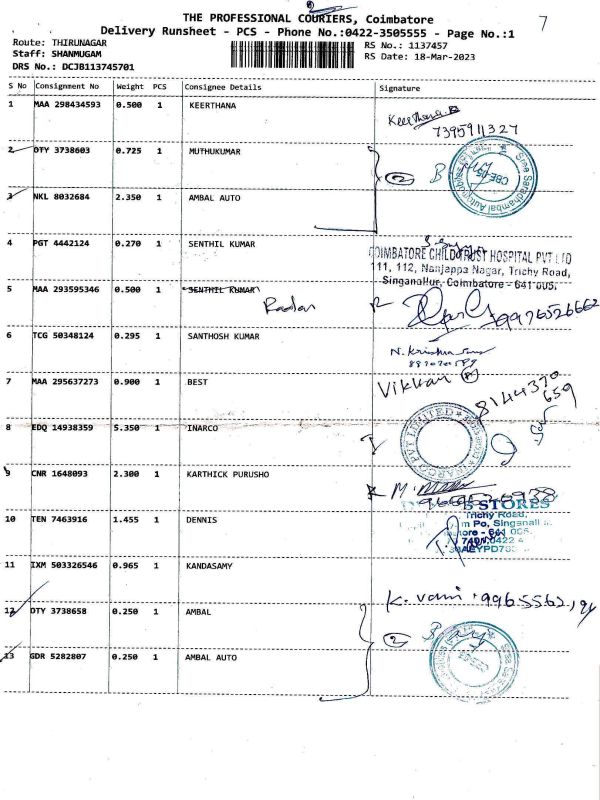 THE PROFESSIONAL COURIERS, Coimbatore
7
Delivery Runsheet - PCS - Phone No.:0422-3505555 - Page No.:1
Route: THIRUNAGAR
Staff: SHANMUGAM
DRS No.: DCJB113745701
RS No.: 1137457
RS Date: 18-Mar-2023
S No Consignment No Weight PCS Consignee Details Signature
1 MAA 298434593 0.500 1 KEERTHANA
Keerthana
7395911327
2 DTY 3738603 0.725 1 MUTHUKUMAR
2
3 NKL 8032684 2.350 1 AMBAL AUTO
4 PGT 4442124 0.270 1 SENTHIL KUMAR
COIMBATORE CHILD TRUST HOSPITAL PVT LTD
111, 112, Nanjappa Nagar, Trichy Road,
Singanallur, Coimbatore - 641 005.
5 MAA 293595346 0.500 1 SENTHIL KUMAR
9976526662
6 TCG 50348124 0.295 1 SANTHOSH KUMAR
7 MAA 295637273 0.900 1 BEST
8144370
659
8 EDQ 14938359 5.350 1 INARCO
9 CNR 1648093 2.300 1 KARTHICK PURUSHO
STORES
Trichy Road,
10 TEN 7463916 1.455 1 DENNIS
11 IXM 503326546 0.965 1 KANDASAMY
K. vani
12 DTY 3738658 0.250 1 AMBAL
2
13 GDR 5282807 0.250 1 AMBAL AUTO